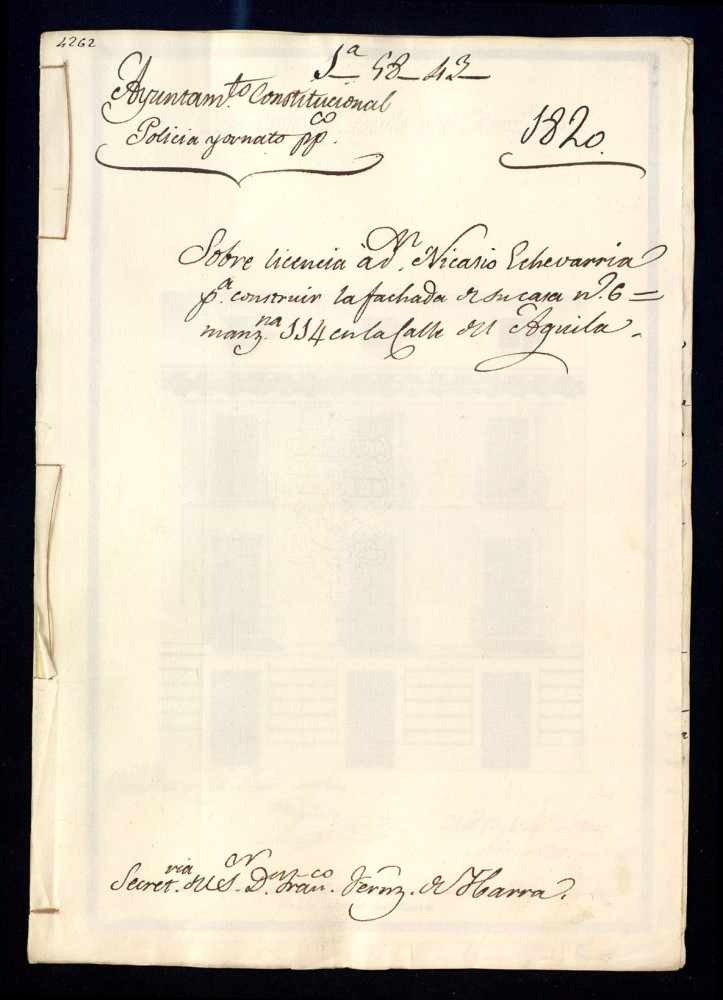 4262
1ª 58-43
Ayuntam.to Constitucional
Policia y ornato pp.co
1820.
Sobre licencia à d.n Nicasio Echevarria
p.a construir la fachada de su casa n.o 6 =
manz.na 114 en la Calle del Aguila.
Secret.ria del S.r D.n Fran.co Fernz. de Ibarra.